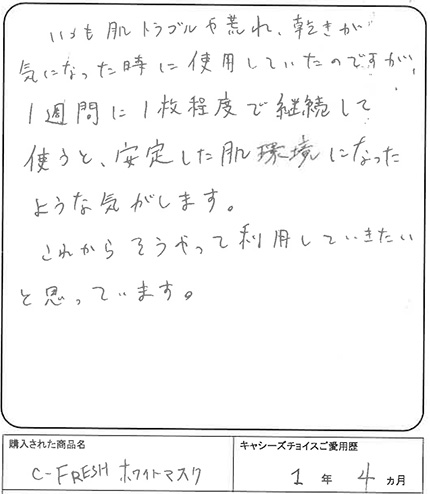 いつも肌トラブルや荒れ、乾きが
気になった時に使用していたのですが、
1週間に1枚程度で継続して
使うと、安定した肌環境になった
ような気がします。
これからそうやって利用していきたい
と思っています。
購入された商品名
C-FRESH ホワイトマスク
キャシーズチョイスご愛用歴
1年4ヵ月